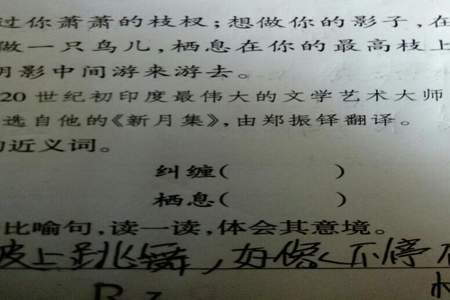 过你萧萧的枝杈；想做你的影子，在
做一只鸟儿，栖息在你的最高枝上
阴影中间游来游去。
20世纪初印度最伟大的文学艺术大师
选自他的《新月集》，由郑振铎翻译。
的近义词。
纠缠(        )
栖息(        )
比喻句，读一读，体会其意境。
波上跳舞，好像 不停